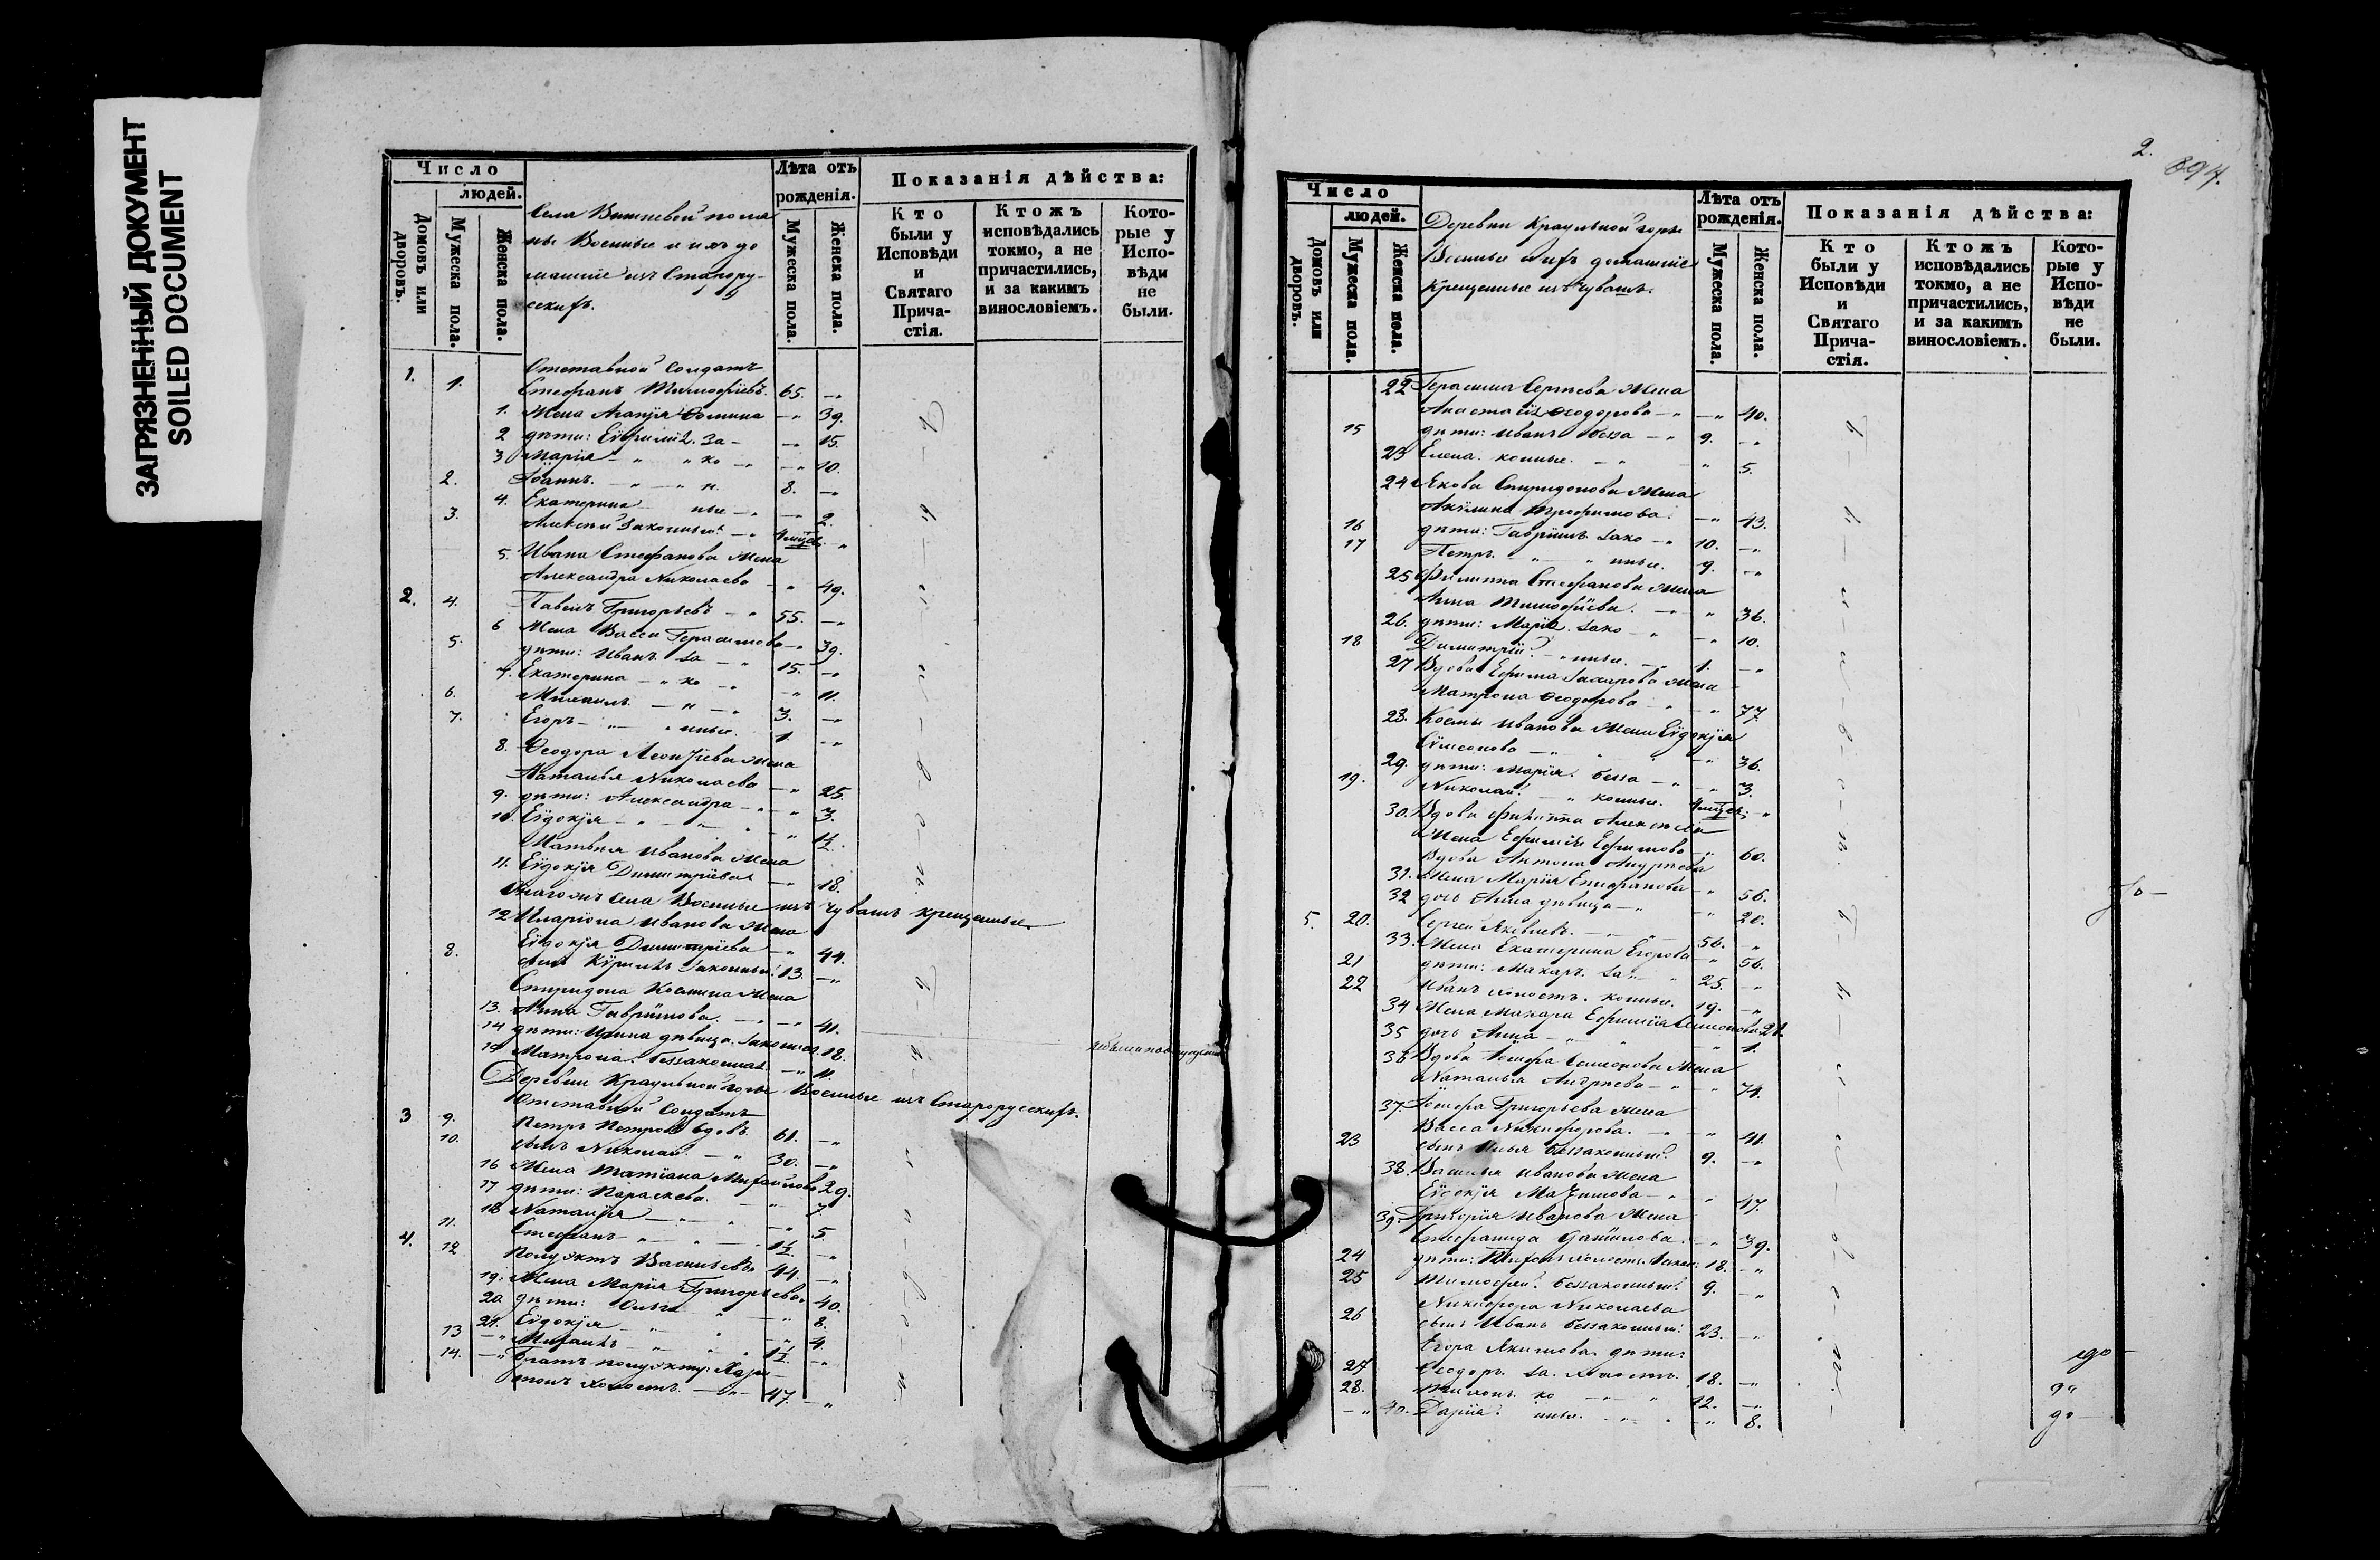 ЗАГРЯЗНЕННЫЙ ДОКУМЕНТ
SOILED DOCUMENT
Число
людей.
Домовъ или дворовъ.
Мужеска пола.
Женска пола.
Села Вишневой поля
ны Военные и ихъ до
машніе изъ Старору-
сскихъ.
Лѣта отъ рожденія.
Мужеска пола.
Женска пола.
Показанія дѣйства:
Кто были у Исповѣди и Святаго Прича-стія.
Ктожъ исповѣдались токмо, а не причастились, и за какимъ винословіемъ.
Кото-рые у Испо-вѣди не были.
Отставной Солдатъ
1. 1. Стефанъ Тимофѣевъ. 65. —„
1. Жена Агапія Фомина —„ 39.
2 дѣти: Евфимія. За- —„ 15.
3 Марія —„ „ ко —„ —„ 10.
2. Іоаннъ. —„ —„ н. 8. —„
4. Екатерина ные —„ —„ 2.
3. Алексѣй законный. —„ 4 мѣсяц. „
5. Ивана Стефанова Жена
Александра Николаева —„ 49.
2. 4. Павелъ Григорьевъ —„ 55. —„
6 Жена Васса Герасимова —„ 39.
5. дѣти: Иванъ. за —„ 15. —„
7. Екатерина —„ ко —„ —„ 11.
6. Михаилъ. —„ н —„ 3. —„
7. Егоръ —„ —„ ные. 1. —„
8. Ѳеодора Леонтіева Жена
Наталья Николаева —„ 25.
9. дѣти: Александра —„ —„ 3.
10. Евдокія —„ —„ —„ 1½.
Матвѣя Иванова Жена
11. Евдокія Димитріева —„ 18.
Онагожъ села Военные изъ Чувашъ крещенные.
12 Иларіона Иванова Жена
Евдокія Димитріева —„ 44.
8. сынъ Кириллъ законный. 13. —„
Спиридона Космина Жена
13. Анна Гавріилова. —„ —„ 41.
14 дѣти: Ирина дѣвица. законная. 18.
15 Матрона. беззаконная. —„ 11.
Деревни Краульной горы Военные изъ Старорусскихъ.
Отставной Солдатъ
3 9. Петръ Петровъ вдовъ. 61. —„
10. сынъ Николай —„ 30. —„
16 Жена Татіана Михайлова 29.
17 дѣти: Параскева. —„ 7.
18 Наталія —„ —„ —„ 5
11. Стефанъ —„ —„ 1½. —„
4. 12 Полуэктъ Васильевъ 44. —„
19. Жена Марія Григорьева. 40.
20 дѣти: Ольга —„ —„ 8.
21. Евдокія —„ —„ —„ 4.
13 —„ Михаилъ —„ —„ 1½. —„
14. —„ Братъ полуэкту: Хари-
тонъ холостъ. —„ 47. —„
2.
894.
Число
людей.
Домовъ или дворовъ.
Мужеска пола.
Женска пола.
Деревни Краульной горы
Военные и ихъ домашніе
Крещенные изъ Чувашъ.
Лѣта отъ рожденія.
Мужеска пола.
Женска пола.
Показанія дѣйства:
Кто были у Исповѣди и Святаго Прича-стія.
Ктожъ исповѣдались токмо, а не причастились, и за какимъ винословіемъ.
Кото-рые у Испо-вѣди не были.
22 Герасима Сергѣева Жена
Анастасія Ѳеодорова —„ —„ 40.
15 дѣти: Иванъ безза —„ 9. —„
23 Елена. конные. —„ „ 5.
24 Якова Спиридонова Жена
Акилина Трофимова. —„ 43.
16 дѣти: Гавріилъ зако —„ 10. —„
17 Петръ. —„ „ нные. 9. —„
25 Филиппа Стефанова Жена
Анна Тимофѣева. —„ „ 36.
26. дѣти: Марія. зако —„ —„ 10.
18 Димитрій. —„ нные. —„ 1. —„
27 Вдова Ефима Захарова Жена
Матрона Ѳеодорова —„ „ 77.
28. Космы Иванова Жена Евдокія
Сѵмеонова —„ „ 36.
29. дѣти: Марія. безза —„ „ 3.
19. Николай. —„ конные. 4 мѣсяц. „
30. Вдова Филиппа Алексѣева
Жена Ефимія Ефимова —„ 60.
Вдова Антона Андреева
31. Жена Марія Епифанова —„ 56.
32 дочь Анна дѣвица —„ —„ 20.
5. 20. Сергей Яковлевъ. —„ 56. „
33. Жена Екатерина Егорова —„ 56.
21 дѣти: Макаръ. за —„ 25. —„
22 Иванъ холостъ. конные. 19. —„
34 Жена Макара Ефимія Симеонова 21.
35 дочь Анна —„ „ „ 1.
36 Вдова Іосифа Семенова Жена
Наталья Андреева —„ „ 74.
37. Іосифа Григорьева Жена
Васса Никифорова. —„ „ 41.
23 сынъ Илья беззаконный. 9. —„
38. Василья Иванова Жена
Евдокія Максимова —„ „ 47.
39. Григорія Иванова Жена
Стефанида —„ 39.
24 дѣти: Тихонъ холостъ. 18. —„
25 Тимофей. беззаконный. 9. „
Никифора Николаева
26 сынъ Иванъ беззаконный. 23. —„
Егора Якимова. дѣти:
27 Ѳеодоръ за. холостъ. 18. —„
28. Тихонъ. ко —„ „ 12. —„
—„ 40. Дарія. нные. —„ —„ 8.
до —
до —
до
до —